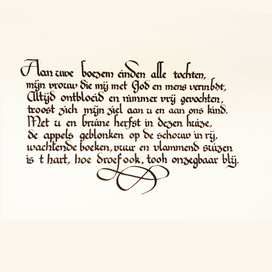 Aan uwe boezem einden alle tochten,
mijn vrouw die mij met God en mens verbindt,
Altijd ontbloeid en nimmer vrij gevochten,
troost zich mijn ziel aan u en aan ons kind.
Met u en bruine herfst in dezen huize,
de appels geblonken op de schouw in rij,
wachtende boeken, vuur en vlammend suizen
is t hart, hoe droef ook, toch onzegbaar blij.